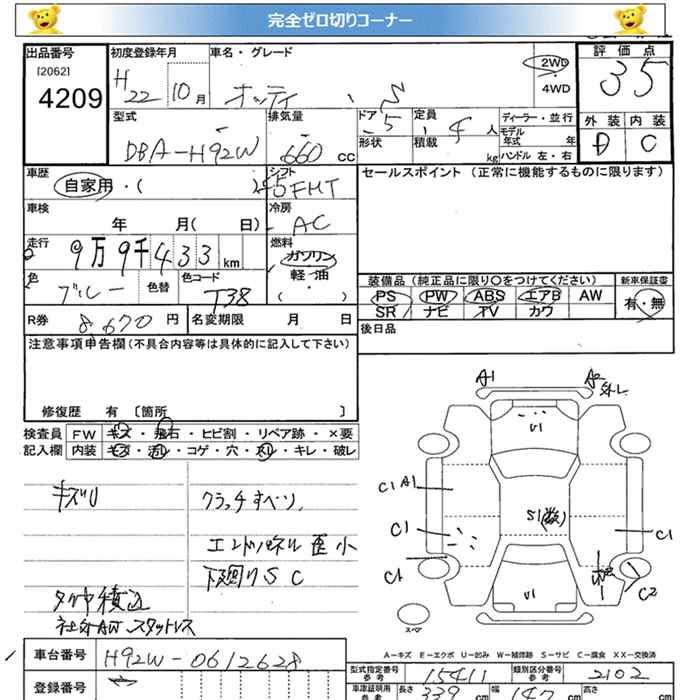 完全ゼロ切りコーナー
出品番号 初度登録年月 車名・グレード 評価点
[2062] 4209 H22 10月 オッティ 2WD ・ 4WD 35
型式 排気量 ドア 5 定員 4人 ディーラー・並行 外装 内装
DBA-H92W 660 CC 形状 積載 kg モデル年式 年 ハンドル 左・右 D C
車歴 自家用・( ) シフト 5FMT セールスポイント (正常に機能するものに限ります)
車検 年 月( 日) 冷房 AC
走行 9万9千433 km 燃料 ガソリン 軽・油 ( ・ )
色 ブルー 色替 色コード T38
装備品 (純正品に限り〇をつけてください) 新車保証書
PS PW ABS エアB AW 有・無
SR ナビ TV カワ
R券 8,670 円 名変期限 月 日 後日品
注意事項申告欄(不具合内容等は具体的に記入して下さい)
修復歴 有 〔箇所 〕
検査員 FW キズ・飛石・ヒビ割・リペア跡・×要
記入欄 内装 キズ・汚レ・コゲ・穴・スレ・キレ・破レ
キズU クラッチすべり
エンドパネル歪小
下廻りSC
タイヤ積込
社外AW スタッドレス
A1 A2
U1
C1 A1
S1(数)
C1 C1
C1 C2
U1
スペア
A-キズ E-エクボ U-凹み W-補修跡 S-サビ C-腐食 XX-交換済
車台番号 H92W-0612628
型式指定番号 参考 15411 類別区分番号 参考 2102
登録番号 車庫証明用 参考 長さ 339 cm 幅 147 cm 高さ cm